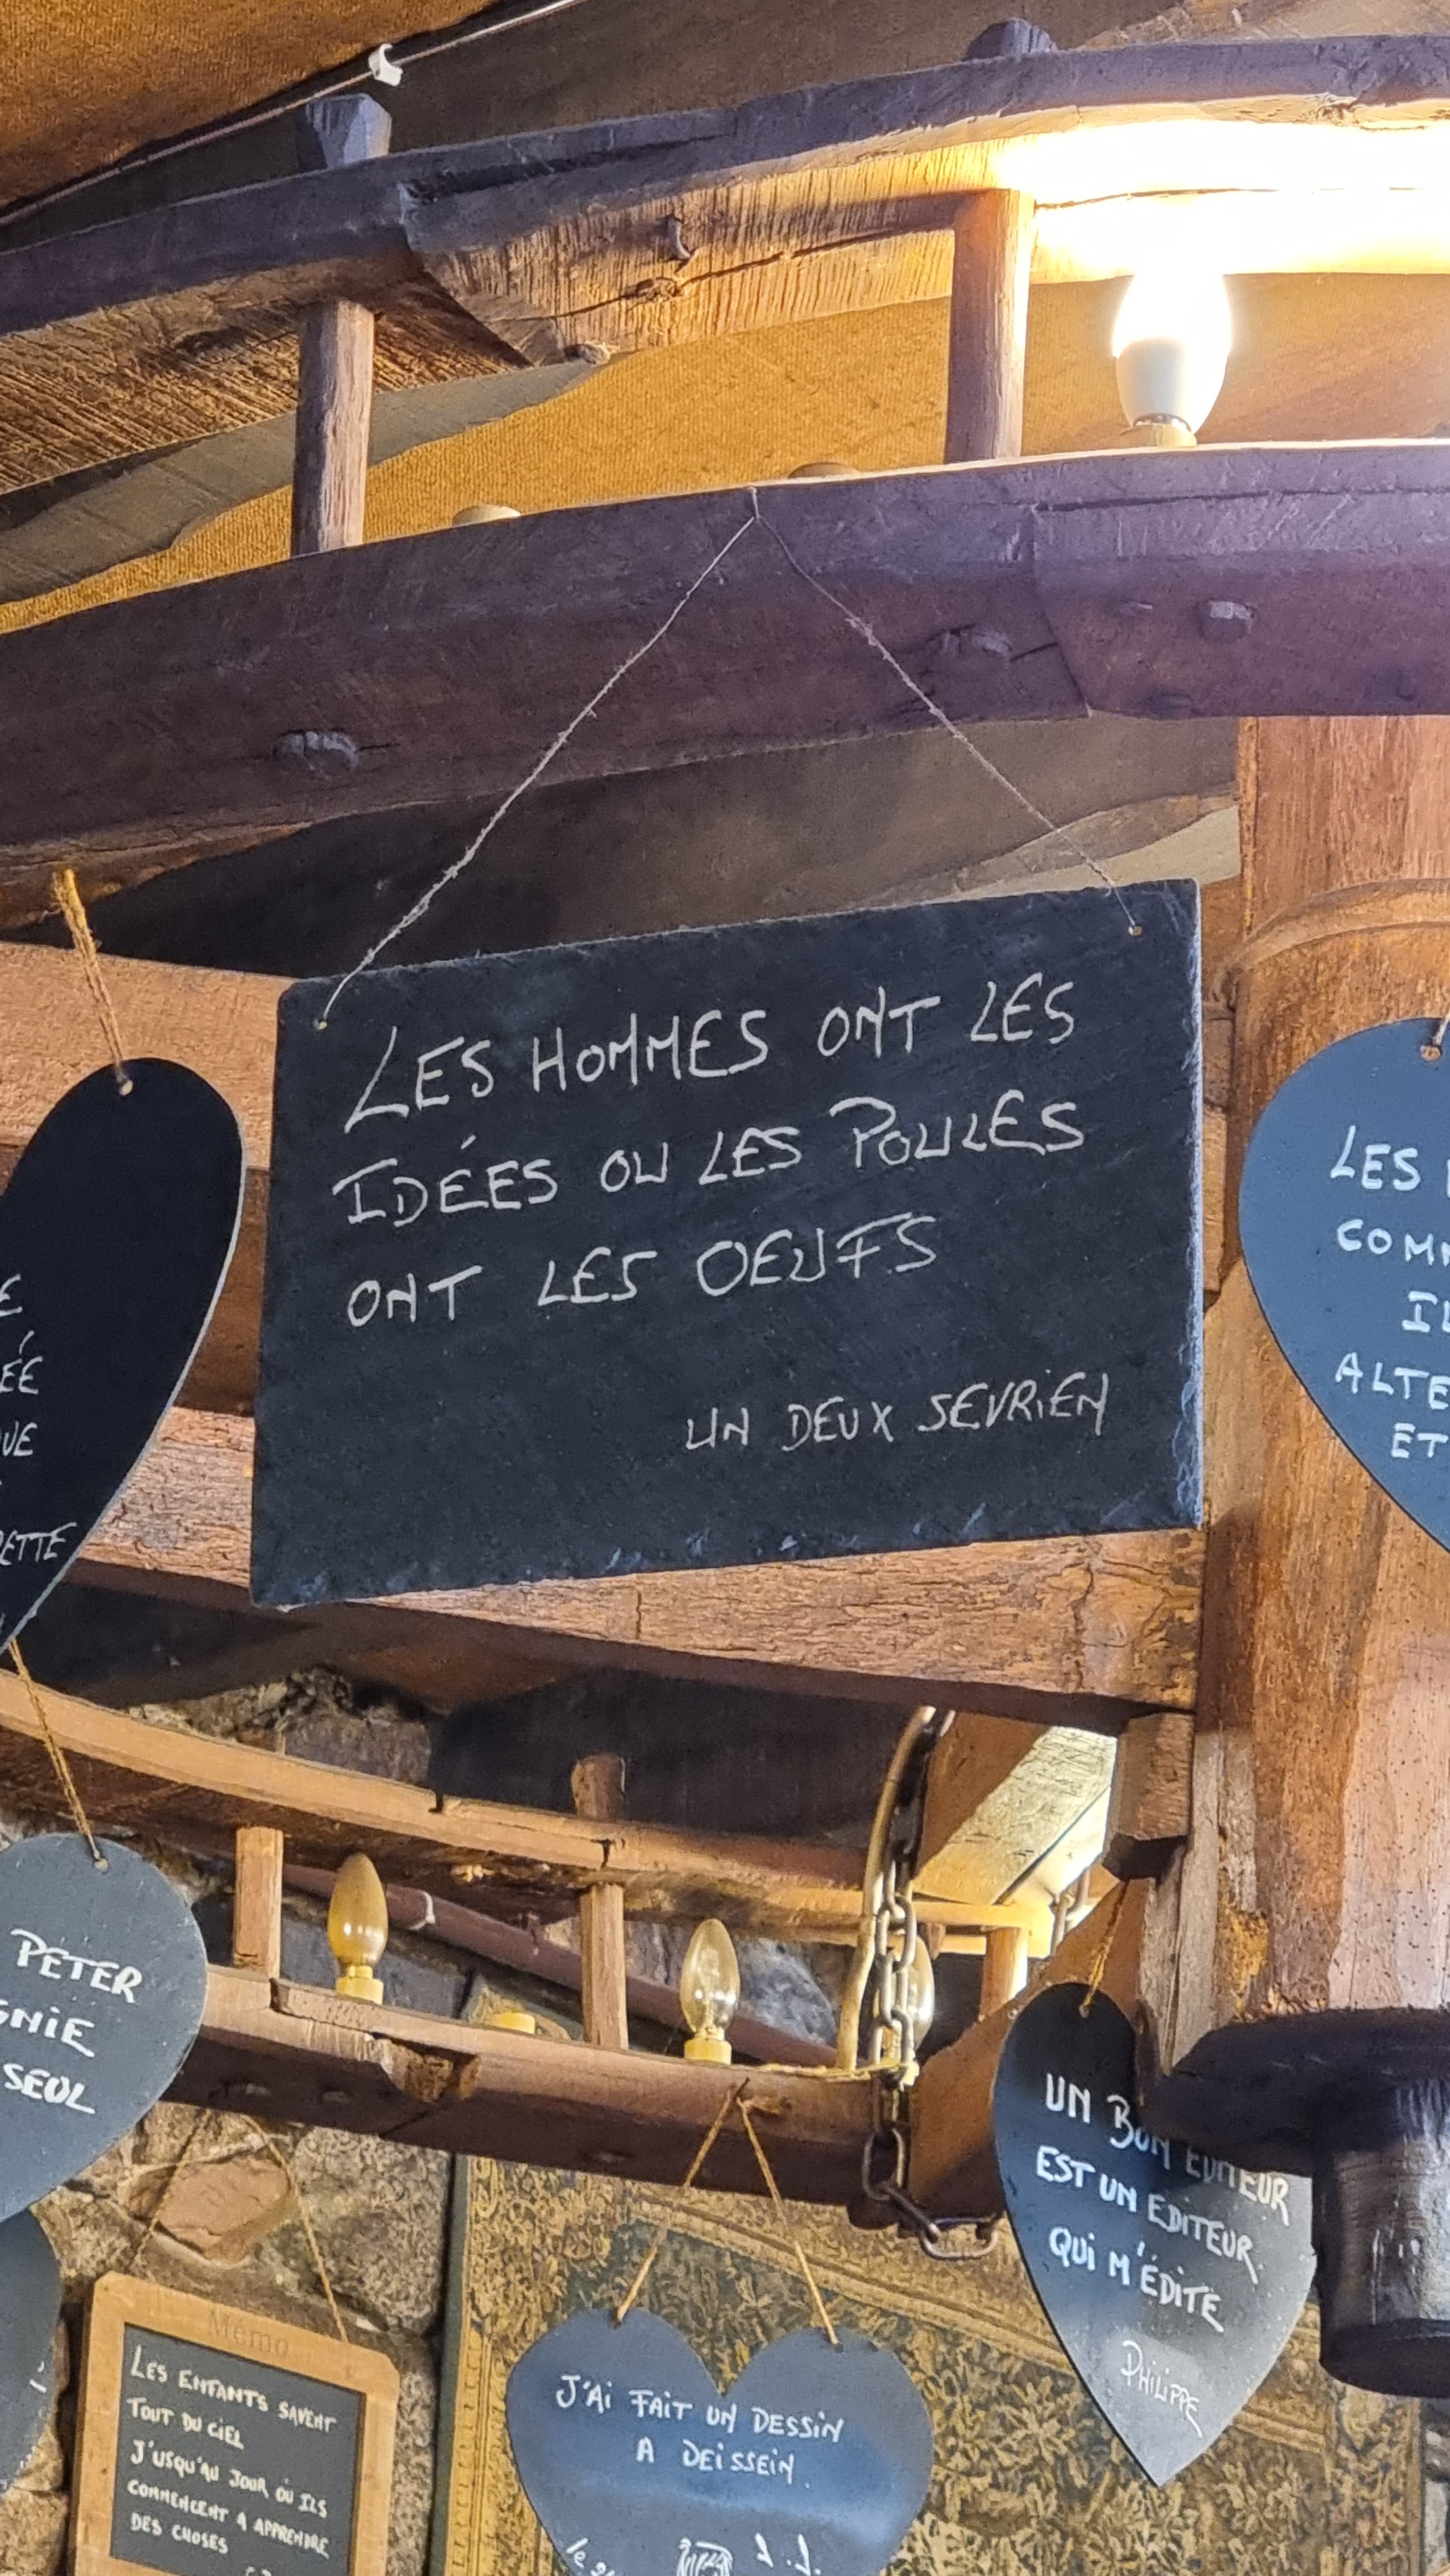 LES HOMMES ONT LES
IDÉES OU LES POULES
ONT LES OEUFS
UN DEUX SEVRIEN
LES
ET
PETER
SEUL
UN BON EDITEUR
EST UN EDITEUR.
QUI M'ÉDITE
PHILIPPE
Memo
LES ENFANTS SAVENT
TOUT DU CIEL
J'USQU'AU JOUR OÙ ILS
COMMENCENT A APPRENDRE
DES CHOSES
J'AI FAIT UN DESSIN
A DEISSEIN.